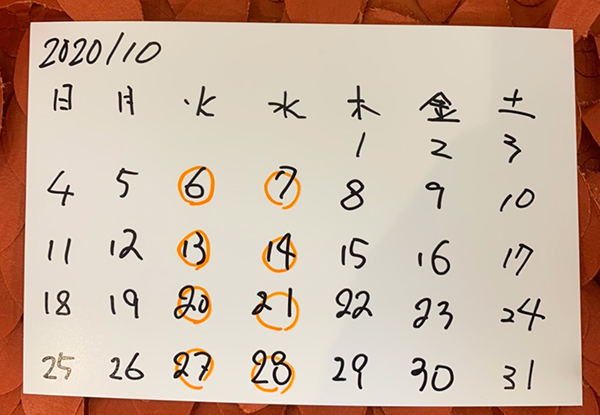 2020/10
日 月 火 水 木 金 土
1 2 3
4 5 6 7 8 9 10
11 12 13 14 15 16 17
18 19 20 21 22 23 24
25 26 27 28 29 30 31